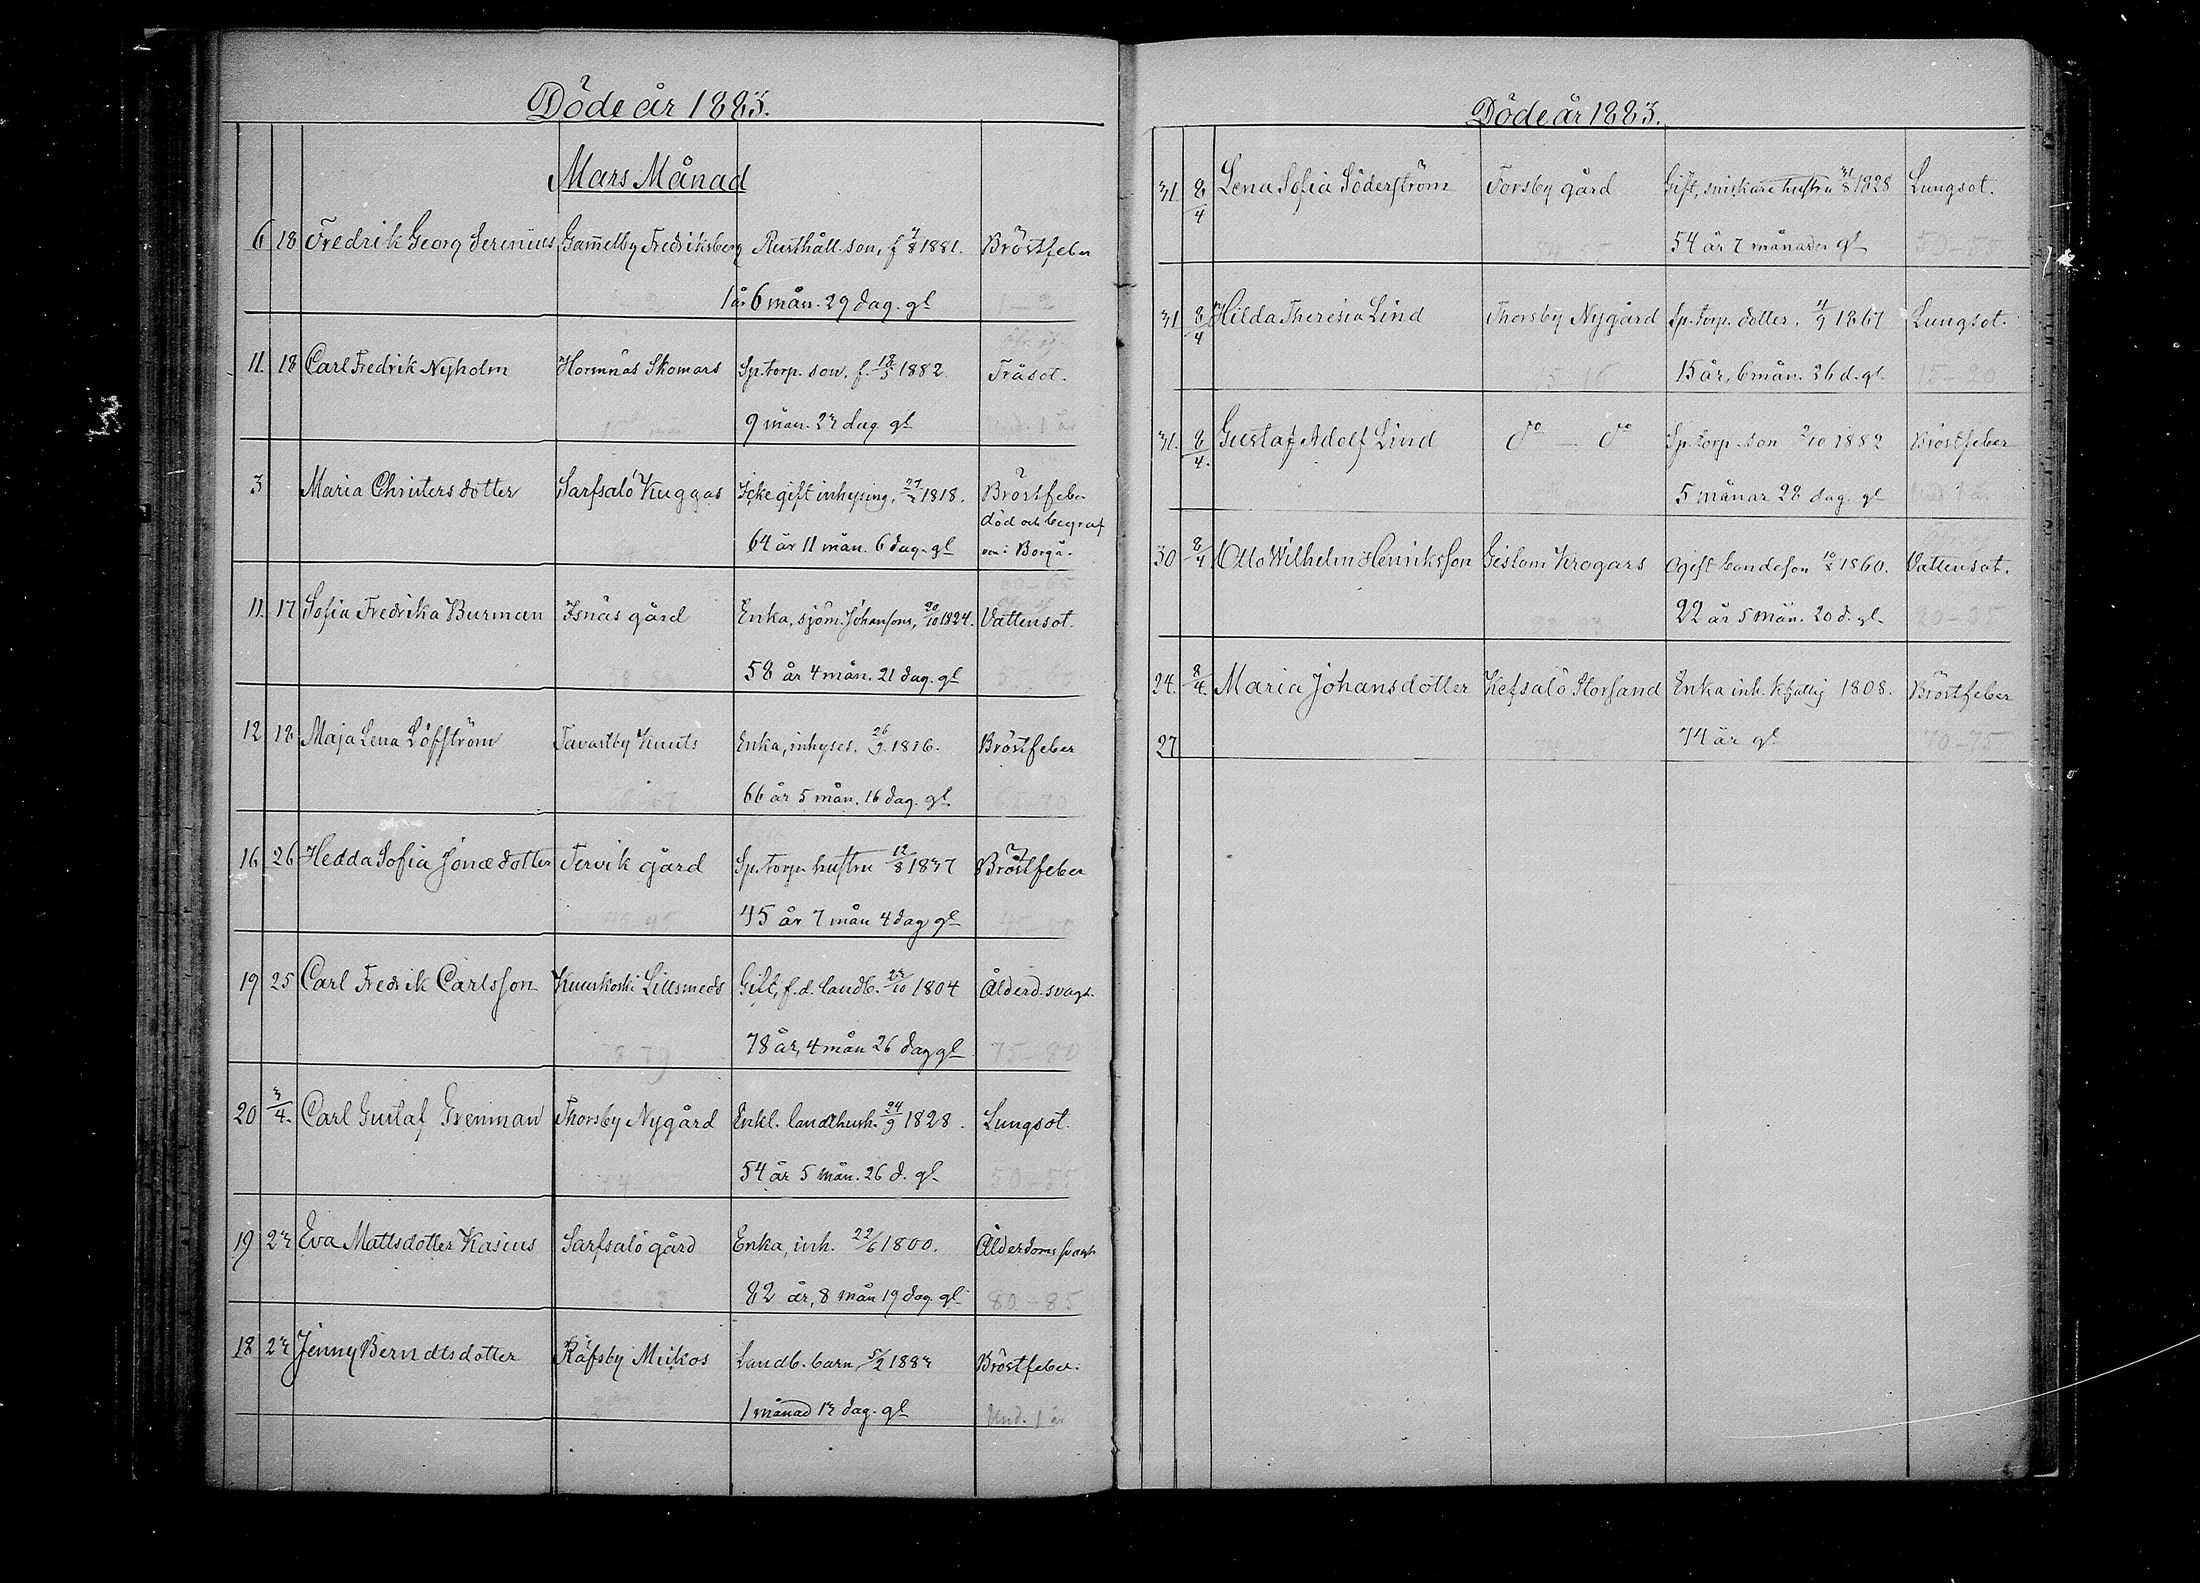 Döde år 1883.
Mars Månad
6 18 Fredrik Georg Serenius Gammelby Fredriksberg Rusthåll. son, f 7/8 1881. Bröstfeber
1 år 6 mån. 29 dag. gl 1–2
11. 18 Carl Fredrik Nyholm Hormnäs Skomars Sp. torp. son. f. 18/5 1882 Tråsot.
9 mån. 23 dag. gl Und. 1 år
3 Maria Christersdotter Sarfsalö Kuggas Icke gift inhysing, 27/3 1818. Bröstfeber
död och begraf
64 år 11 mån. 6 dag. gl ven i Borgå.
11. 17 Sofia Fredrika Burman Isnäs gård Enka, sjöm. Johansons, 20/10 1824. Vattensot.
58 år 4 mån. 21 dag. gl
12 18 Maja Lena Löfström Tavastby Knuts Enka, inhyses. 26/9 1816. Bröstfeber
66 år 5 mån. 16 dag. gl 65–70
16 26 Hedda Sofia Jonædotter Tervik gård Sp. torp. hustru 12/8 1837 Bröstfeber
45 år 7 mån 4 dag gl
19 25 Carl Fredrik Carlsson Kuuskoski Lillsmeds Gift, f.d. landb. 23/10 1804 Ålderd. svagh.
78 år, 4 mån 26 dag gl 75–80
20 3/4. Carl Gustaf Grenman Thorsby Nygård Enkl. landbush. 24/9 1828. Lungsot.
54 år 5 mån. 26 d. gl 50–55
19 23 Eva Mattsdotter Kasius Sarfsalö gård Enka, inh. 22/6 1800. Ålderdomssvagh
82 år, 8 mån 19 dag. gl 80–85
18 23 Jenny Berndtsdotter Räfsby Mickos Landb. barn, 5/2 1883 Bröstfeber.
1 månad 13 dag. gl Und. 1 år
Döde år 1883.
31. 8/4 Lena Sofia Söderström Forsby gård Gift, snickare hustru 31/8 1828 Lungsot.
54 år 7 månader gl 50–55
31 8/4 Hilda Theresia Lind Thorsby Nygård Sp. torp. dotter. 4/9 1867 Lungsot.
15 år, 6 mån. 26 d. gl 15–20
31. 8/4. Gustaf Adolf Lind do — do Sp. torp. son 2/10 1882 Bröstfeber
5 månar 28 dag. gl Und 1 år
30 8/4 Otto Wilhelm Henriksson Gislom Krogars Ogift bondeson 10/10 1860. Vattensot.
22 år 5 mån. 20 d. gl 20–25
24. 8/4. Maria Johansdotter Kefsalö Storsand Enka inh. 1808. Bröstfeber
74 år gl 70–75
27